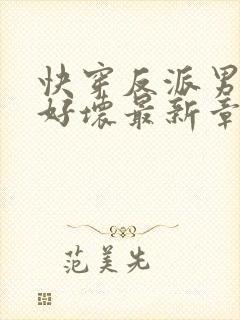 快穿反派男
好坏最新章
范美先